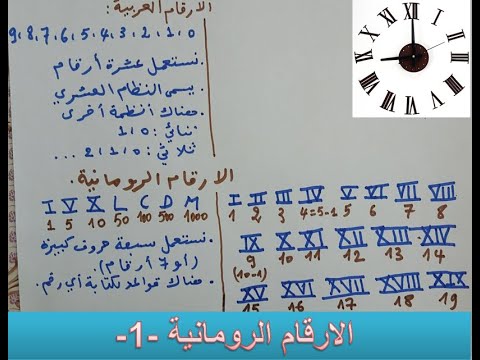 الارقام العربية:
9،8،7،6،5،4،3،2،1،0
. نستعمل عشرة أرقام
. يسمى النظام العشري
. هناك أنظمة أخرى
ثنائي: 1،0
ثلاثي: 2،1،0 ...
الارقام الرومانية.
I V X L C D M
1 5 10 50 100 500 1000
. نستعمل سبعة حروف كبيرة
(أو 7 أرقام).
. هناك قواعد لكتابة أي رقم.
I II III IV V VI VII VIII
1 2 3 4=5-1 5 6 7 8
IX X XI XII XIII XIV
9 10 11 12 13 14
(10-1)
XV XVI XVII XVIII XIX
15 16 17 18 19
الارقام الرومانية -1-